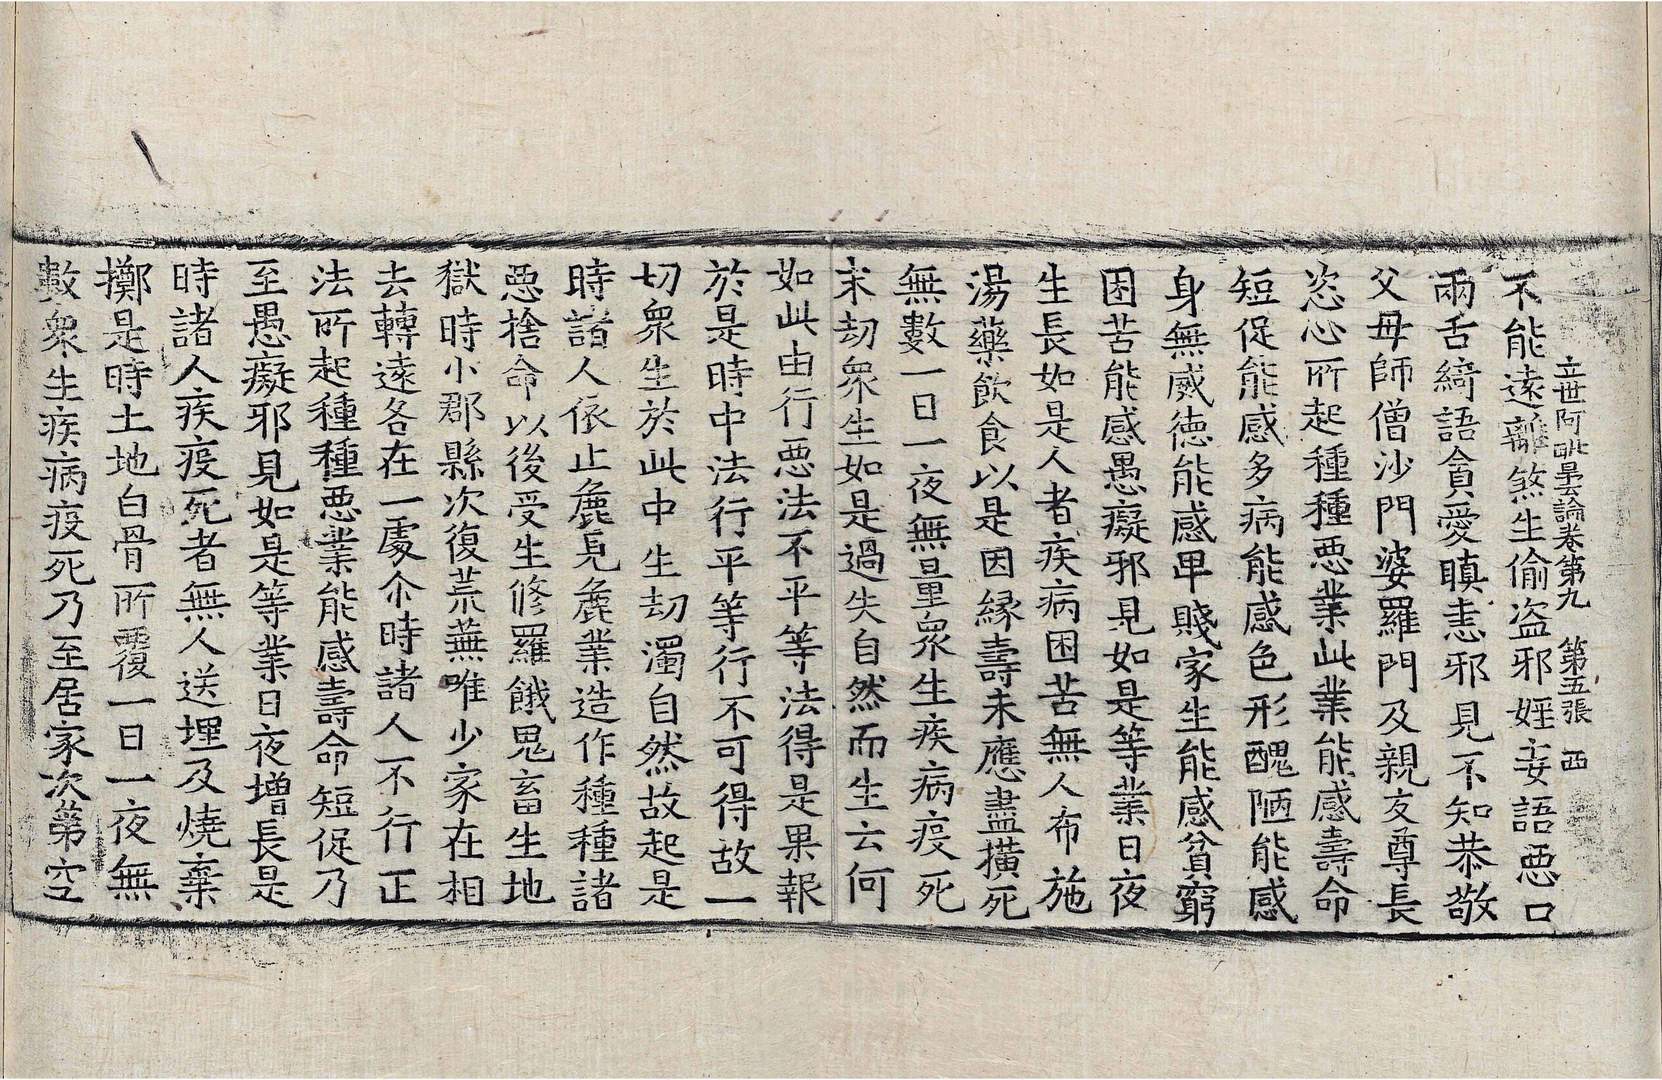 立世阿毗曇論卷第九　第五張　西
不能遠離煞生偷盜邪婬妄語惡口
兩舌綺語貪愛瞋恚邪見不知恭敬
父母師僧沙門婆羅門及親友尊長
恣心所起種種惡業此業能感壽命
短促能感多病能感色形醜陋能感
身無威德能感卑賤家生能感貧窮
困苦能感愚癡邪見如是等業日夜
生長如是人者疾病困苦無人布施
湯藥飲食以是因緣壽未應盡橫死
無數一日一夜無量衆生疾病疫死
末劫衆生如是過失自然而生云何
如此由行惡法不平等法得是果報
於是時中法行平等行不可得故一
切衆生於此中生劫濁自然故起是
時諸人依止麁見麁業造作種種諸
惡捨命以後受生修羅餓鬼畜生地
獄時小郡縣次復荒蕪唯少家在相
去轉遠各在一處尒時諸人不行正
法所起種種惡業能感壽命短促乃
至愚癡邪見如是等業日夜增長是
時諸人疾疫死者無人送埋及燒棄
擲是時土地白骨所覆一日一夜無
數衆生疾病疫死乃至居家次第空